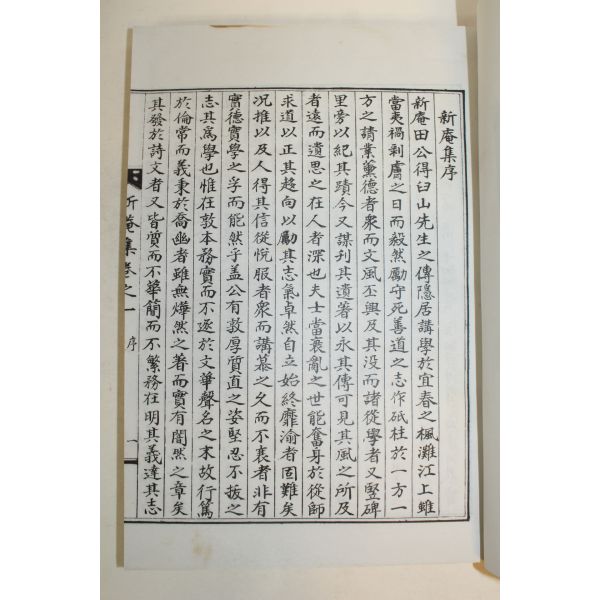 新庵集序
新庵田公得臼山先生之傳隱居講學於宜春之楓灘江上雖
當夷禍剥膚之日而毅然勵守死善道之志作砥柱於一方一
方之請業薰德者衆而文風丕興及其没而諸從學者又竪碑
里旁以紀其蹟今又謀刊其遺著以永其傳可見其風之所及
者遠而遺思之在人者深也夫士當衰亂之世能奮身於從師
求道以正其趍向以勵其志氣卓然自立始終靡渝者固難矣
况推以及人得其信從悅服者衆而講慕之久而不衰者非有
實德實學之孚而能然乎盖公有敦厚質直之姿堅忍不拔之
志其爲學也惟在敦本務實而不遂於文華聲名之末故行篤
於倫常而義秉於喬幽者雖無燁然之著而實有闇然之章矣
其發於詩文者又皆質而不華簡而不繁務在明其義達其志
新庵集卷之一
序
一